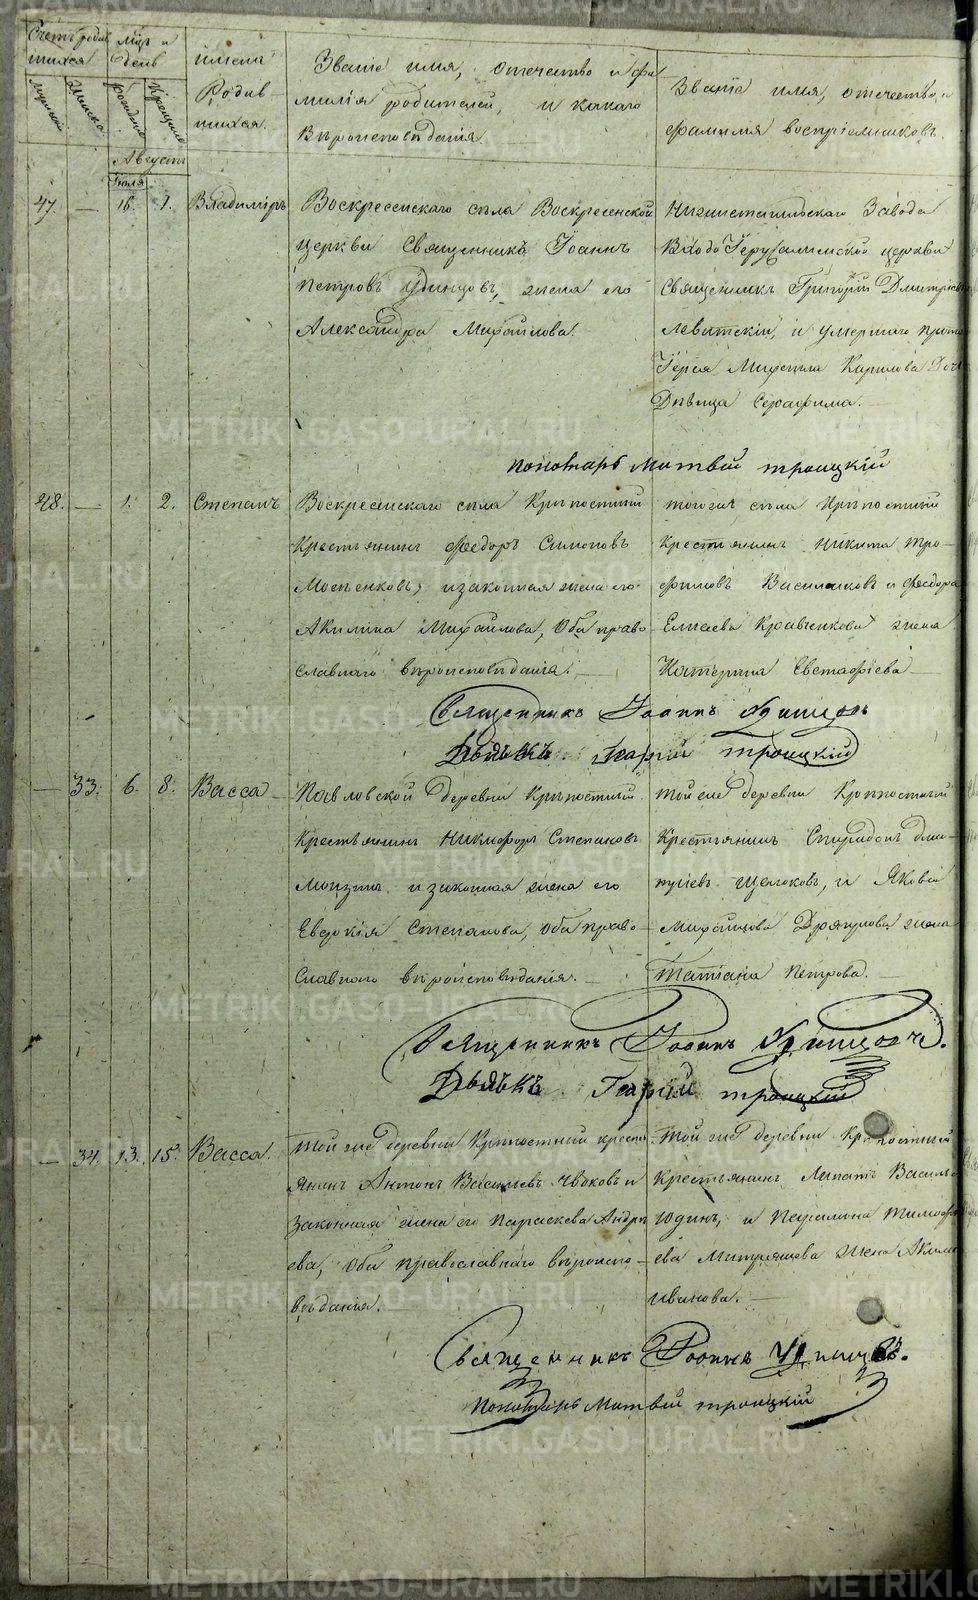 Счетъ родив
шихся
Мцъ и
день
имена
Родив
шихся.
Званіе имя, отечество и фа
милія родителей, и какого
Вѣроисповѣданія.
Званіе имя, отечество, и
фамилія воспріемниковъ.
мужеска
женска
рожденія
крещенія
Августъ
Іюля
47. — 16. 1. Владиміръ
Воскресенскаго села Воскресенской
церкви Священникъ Іоаннъ
Петровъ Удинцовъ, жена его
Александра Михайлова.
Нижнетагильскаго Завода
Входо Іерусалимской церкви
Священникъ Григорій Дмитріевъ
Левитскій, и умершаго прото
Іерея Михаила Кирилова Дочь
Дѣвица Серафима.
пономарь Матвѣй троицкій
48. — 1. 2. Степанъ
Воскресенскаго села Крѣпостный
Крестьянинъ Федоръ Симоновъ
и законная жена его
Акилина Михайлова, Оба право
славнаго вѣроисповѣданія. —
тогоже села Крѣпостный
крестьянинъ Никита Тро—
фимовъ и Федора
Елисеева жена
Катерина Евстафіева —
Священникъ Іоаннъ Удинцовъ
Дьячекъ Георгій троицкій
— 33. 6. 8. Васса —
Павловской деревни Крѣпостный
Крестьянинъ Никифоръ Степановъ
и законная жена его
Евдокія Степанова, оба право—
Славнаго вѣроисповѣданія. —
той же деревни Крѣпостный
Крестьянинъ Спиридонъ Дми—
тріевъ Щелоковъ, и Якова
жена
Татіана Петрова. —
Священникъ Іоаннъ Удинцовъ.
Дьячекъ Георгій троицкій
— 34. 13. 15. Васса.
Той же деревни Крѣпостный кресть
янинъ Антонъ Васильевъ и
Законная жена его Параскева Андре
ева, Оба православнаго вѣроиспо—
вѣданія. —
Той же деревни Крѣпостный
Крестьянинъ Липатъ Василь
Юдинъ, и Тимофе
ева жена Акилина
иванова. —
Священникъ Іоаннъ Удинцовъ.
Пономарь Матвѣй троицкій
METRIKI.GASO-URAL.RU